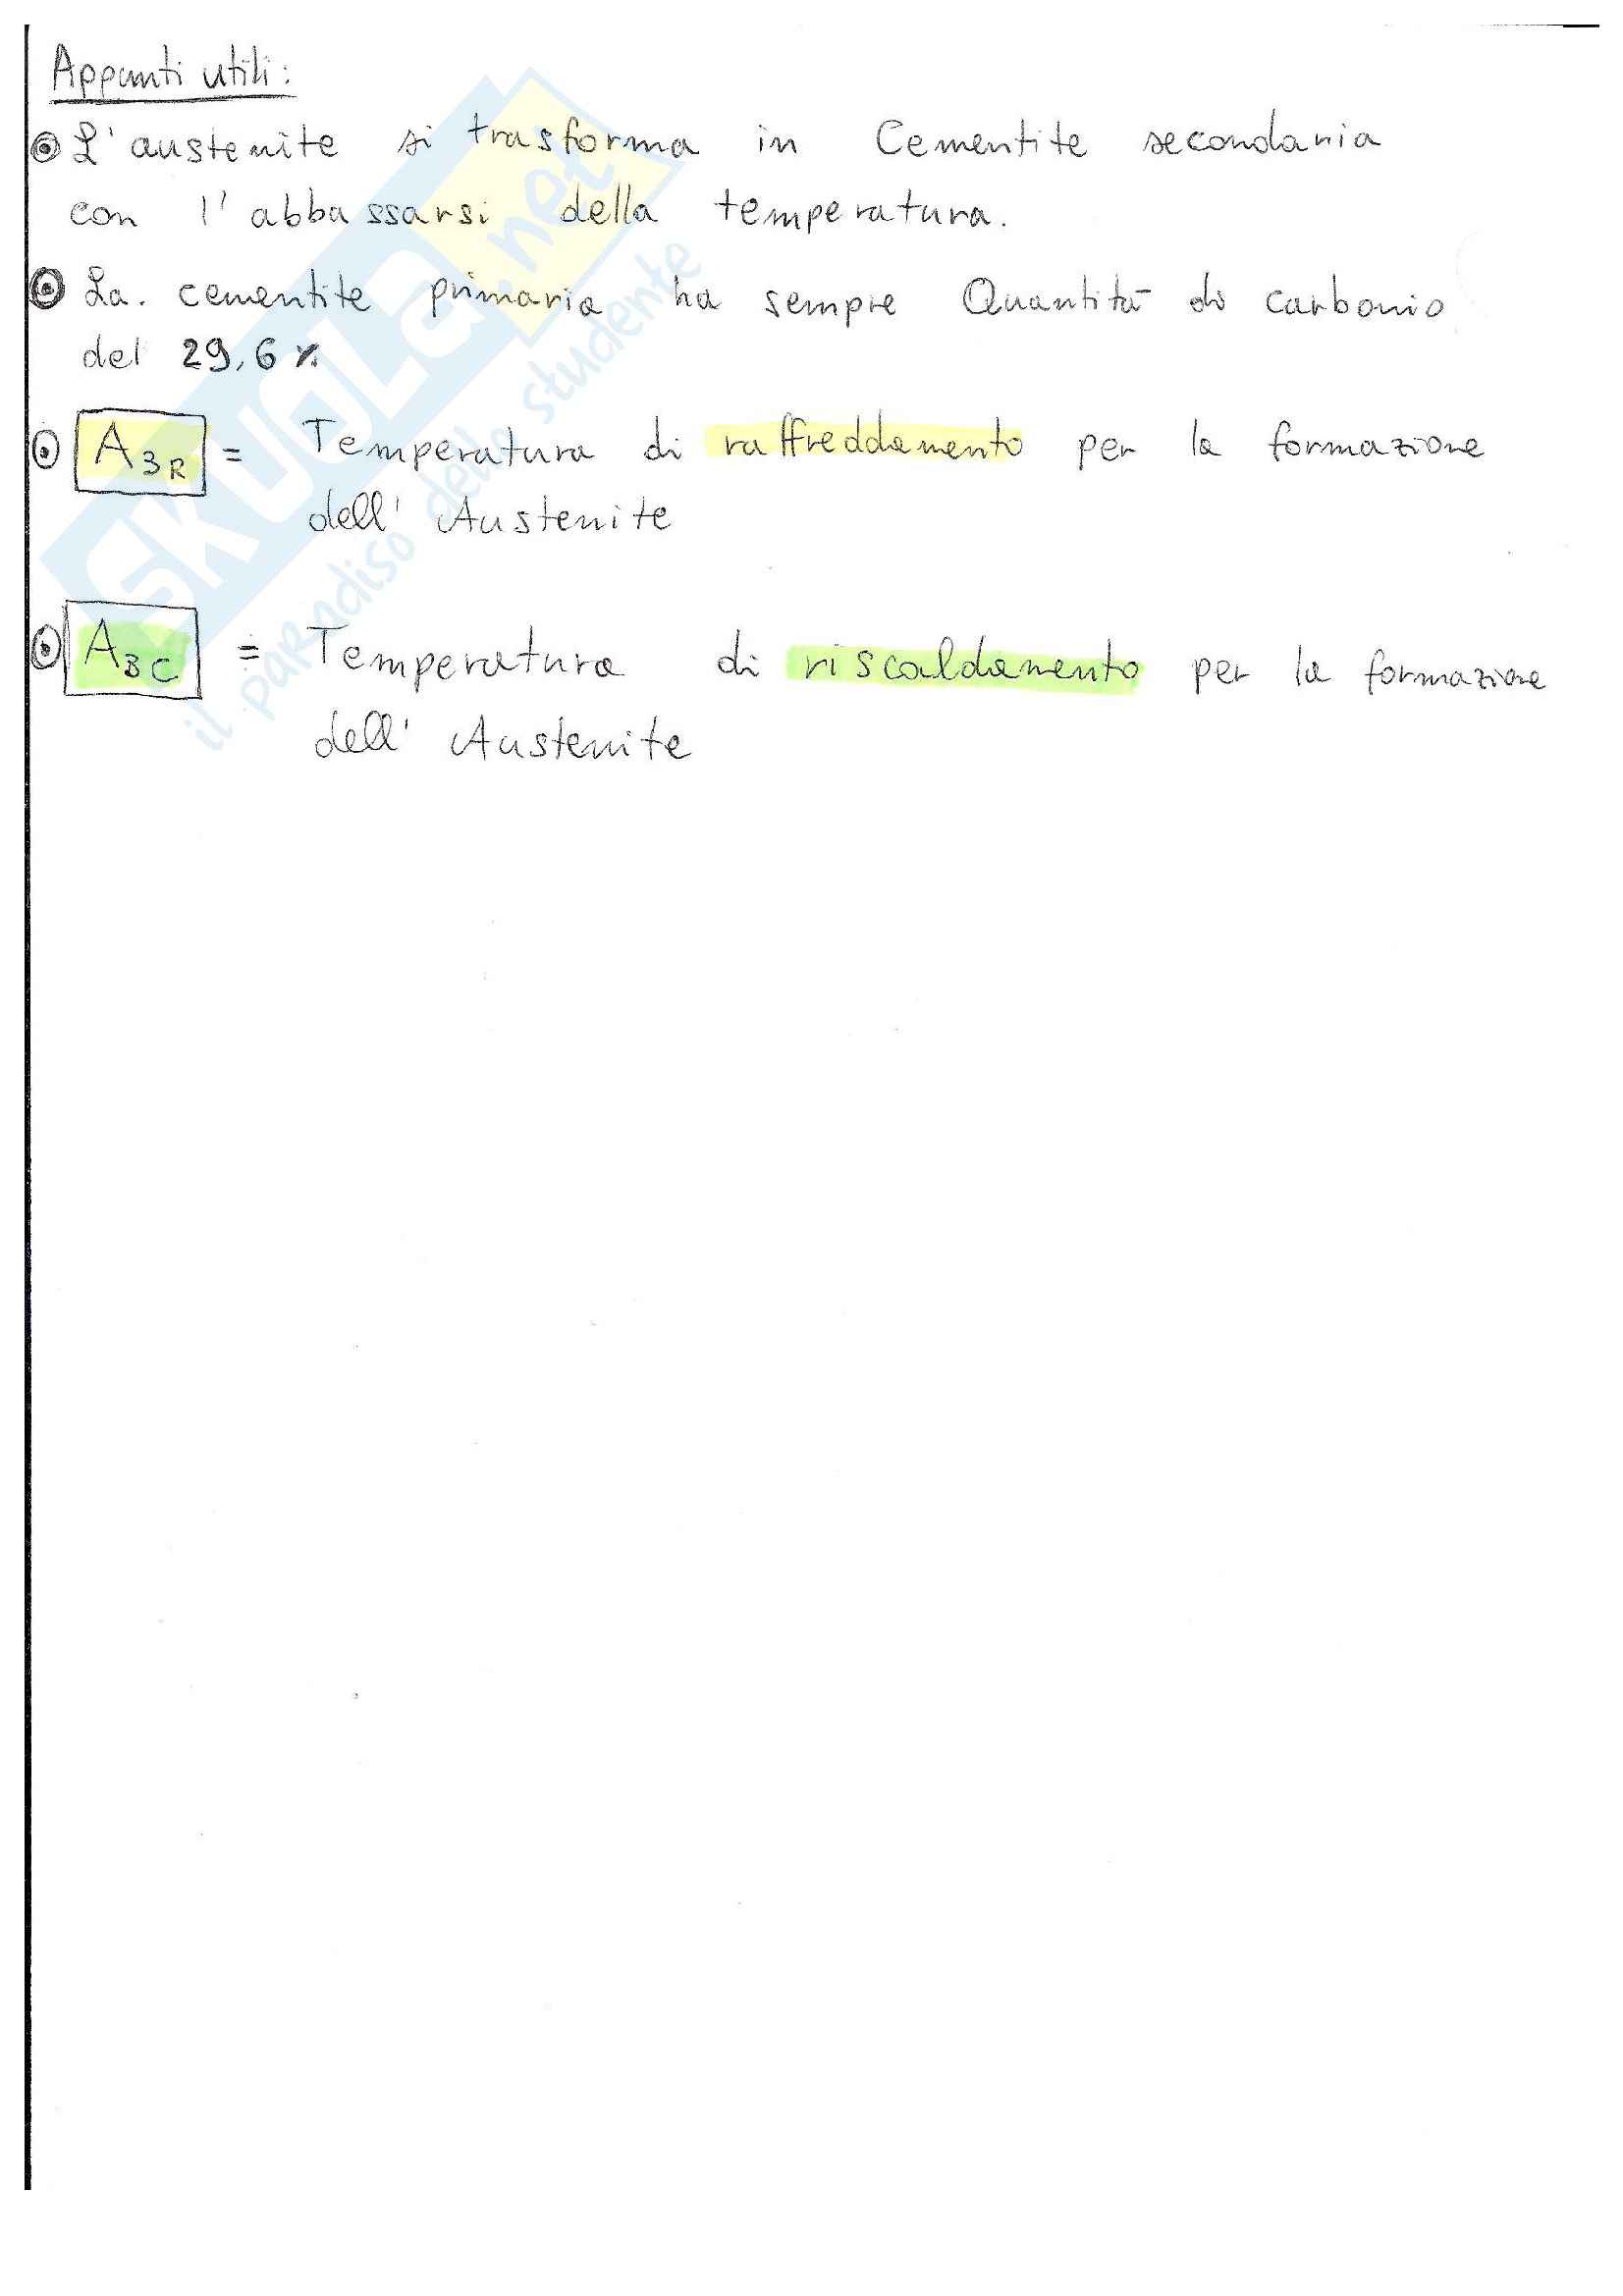 Appunti utili:
L'austenite si trasforma in Cementite secondaria
con l'abbassarsi della temperatura.
La. cementite primaria ha sempre Quantità di carbonio
del 29,6 %
A3R = Temperatura di raffreddamento per la formazione
dell' Austenite
A3C = Temperatura di riscaldamento per la formazione
dell' Austenite
SKUOLa.net
il paradiso dello studente